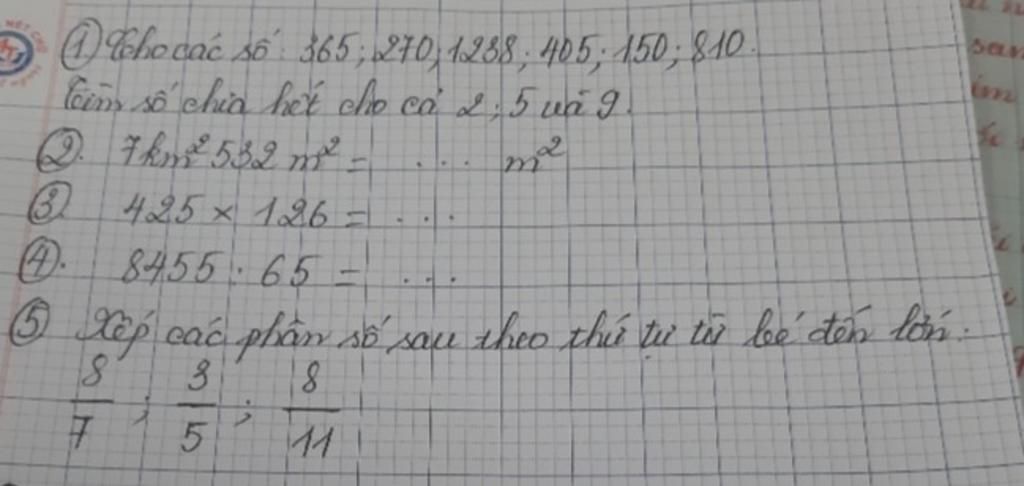 ① Cho các số: 365; 270; 1238; 405; 150; 810.
Tìm số chia hết cho cả 2; 5 và 9.
②. 7km² 532 m² = . . . m²
③. 425 × 126 = . . .
④. 8455 : 65 = . . .
⑤ Xếp các phân số sau theo thứ tự từ bé đến lớn:
8/7 ; 3/5 ; 8/11